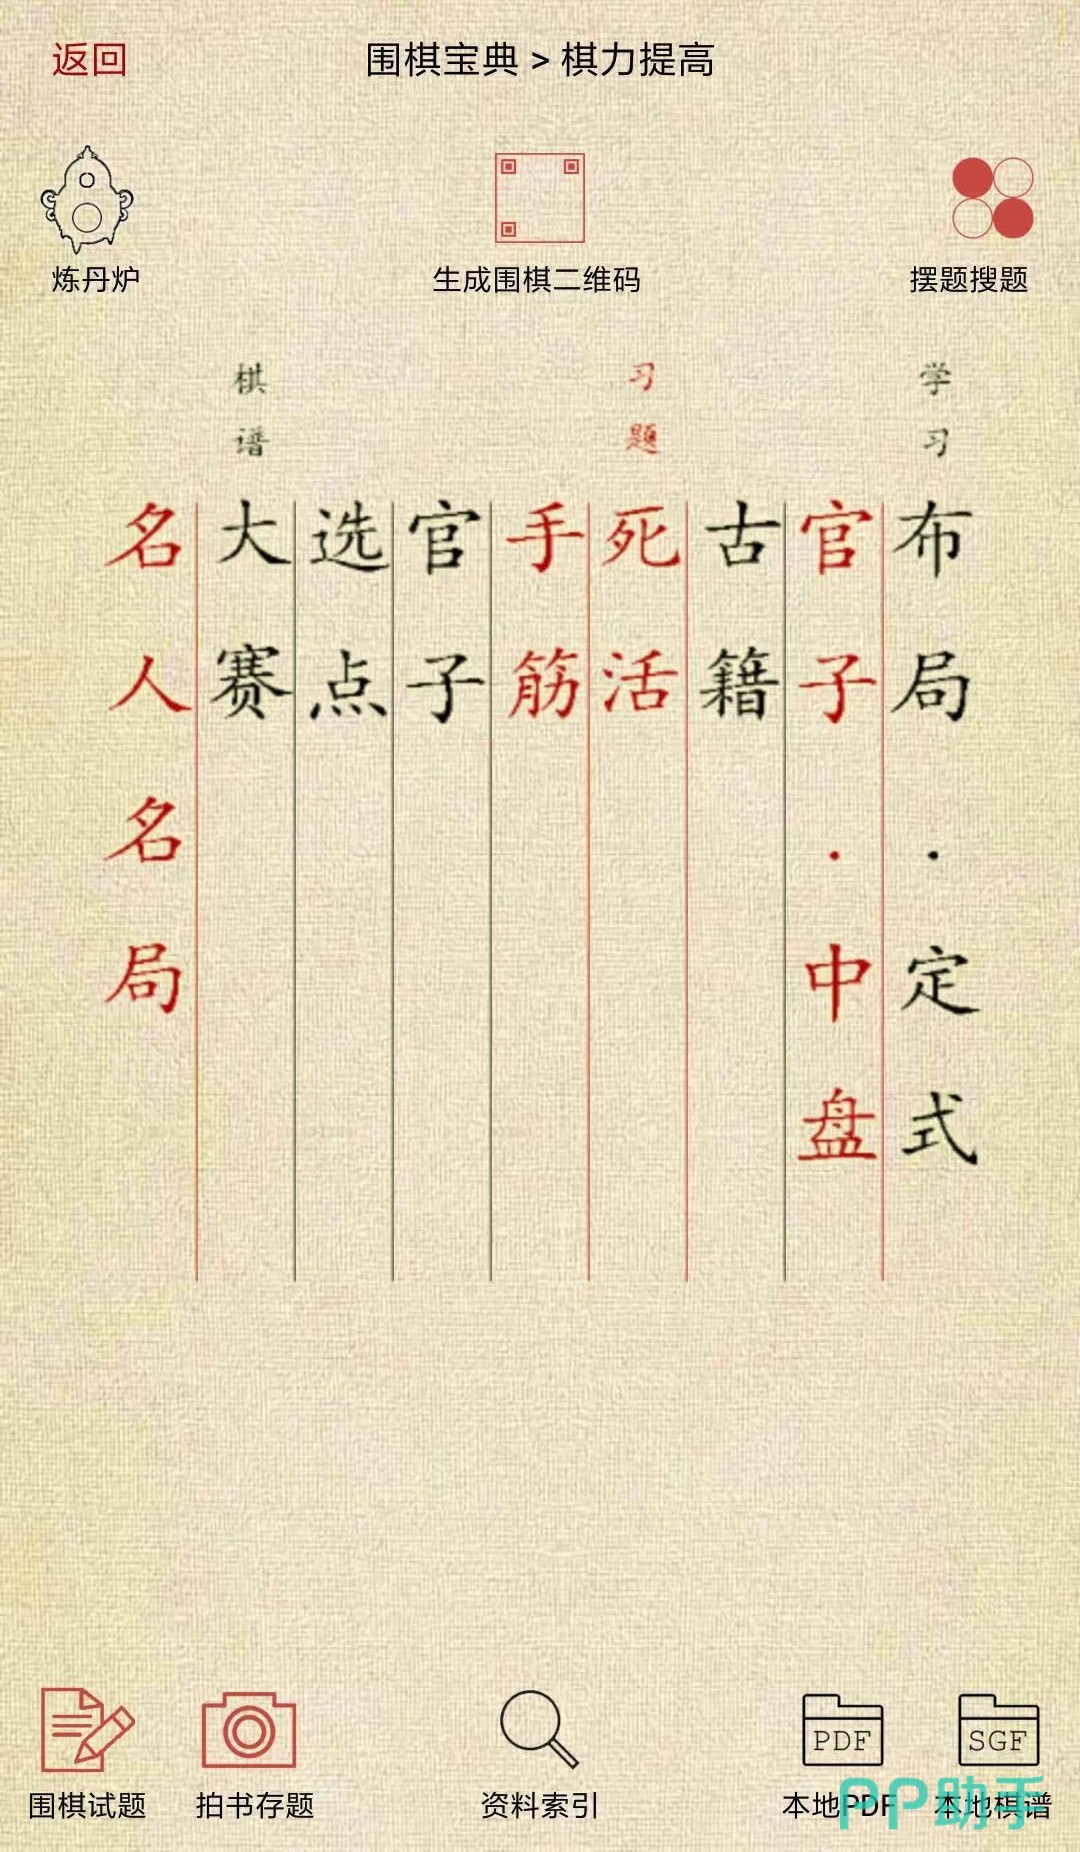 返回
围棋宝典 > 棋力提高
炼丹炉
生成围棋二维码
摆题搜题
学习
布局·定式
官子·中盘
习题
古籍
死活
手筋
官子
选点
棋谱
大赛
名人名局
围棋试题
拍书存题
资料索引
PDF
本地PDF
SGF
本地棋谱
PP助手